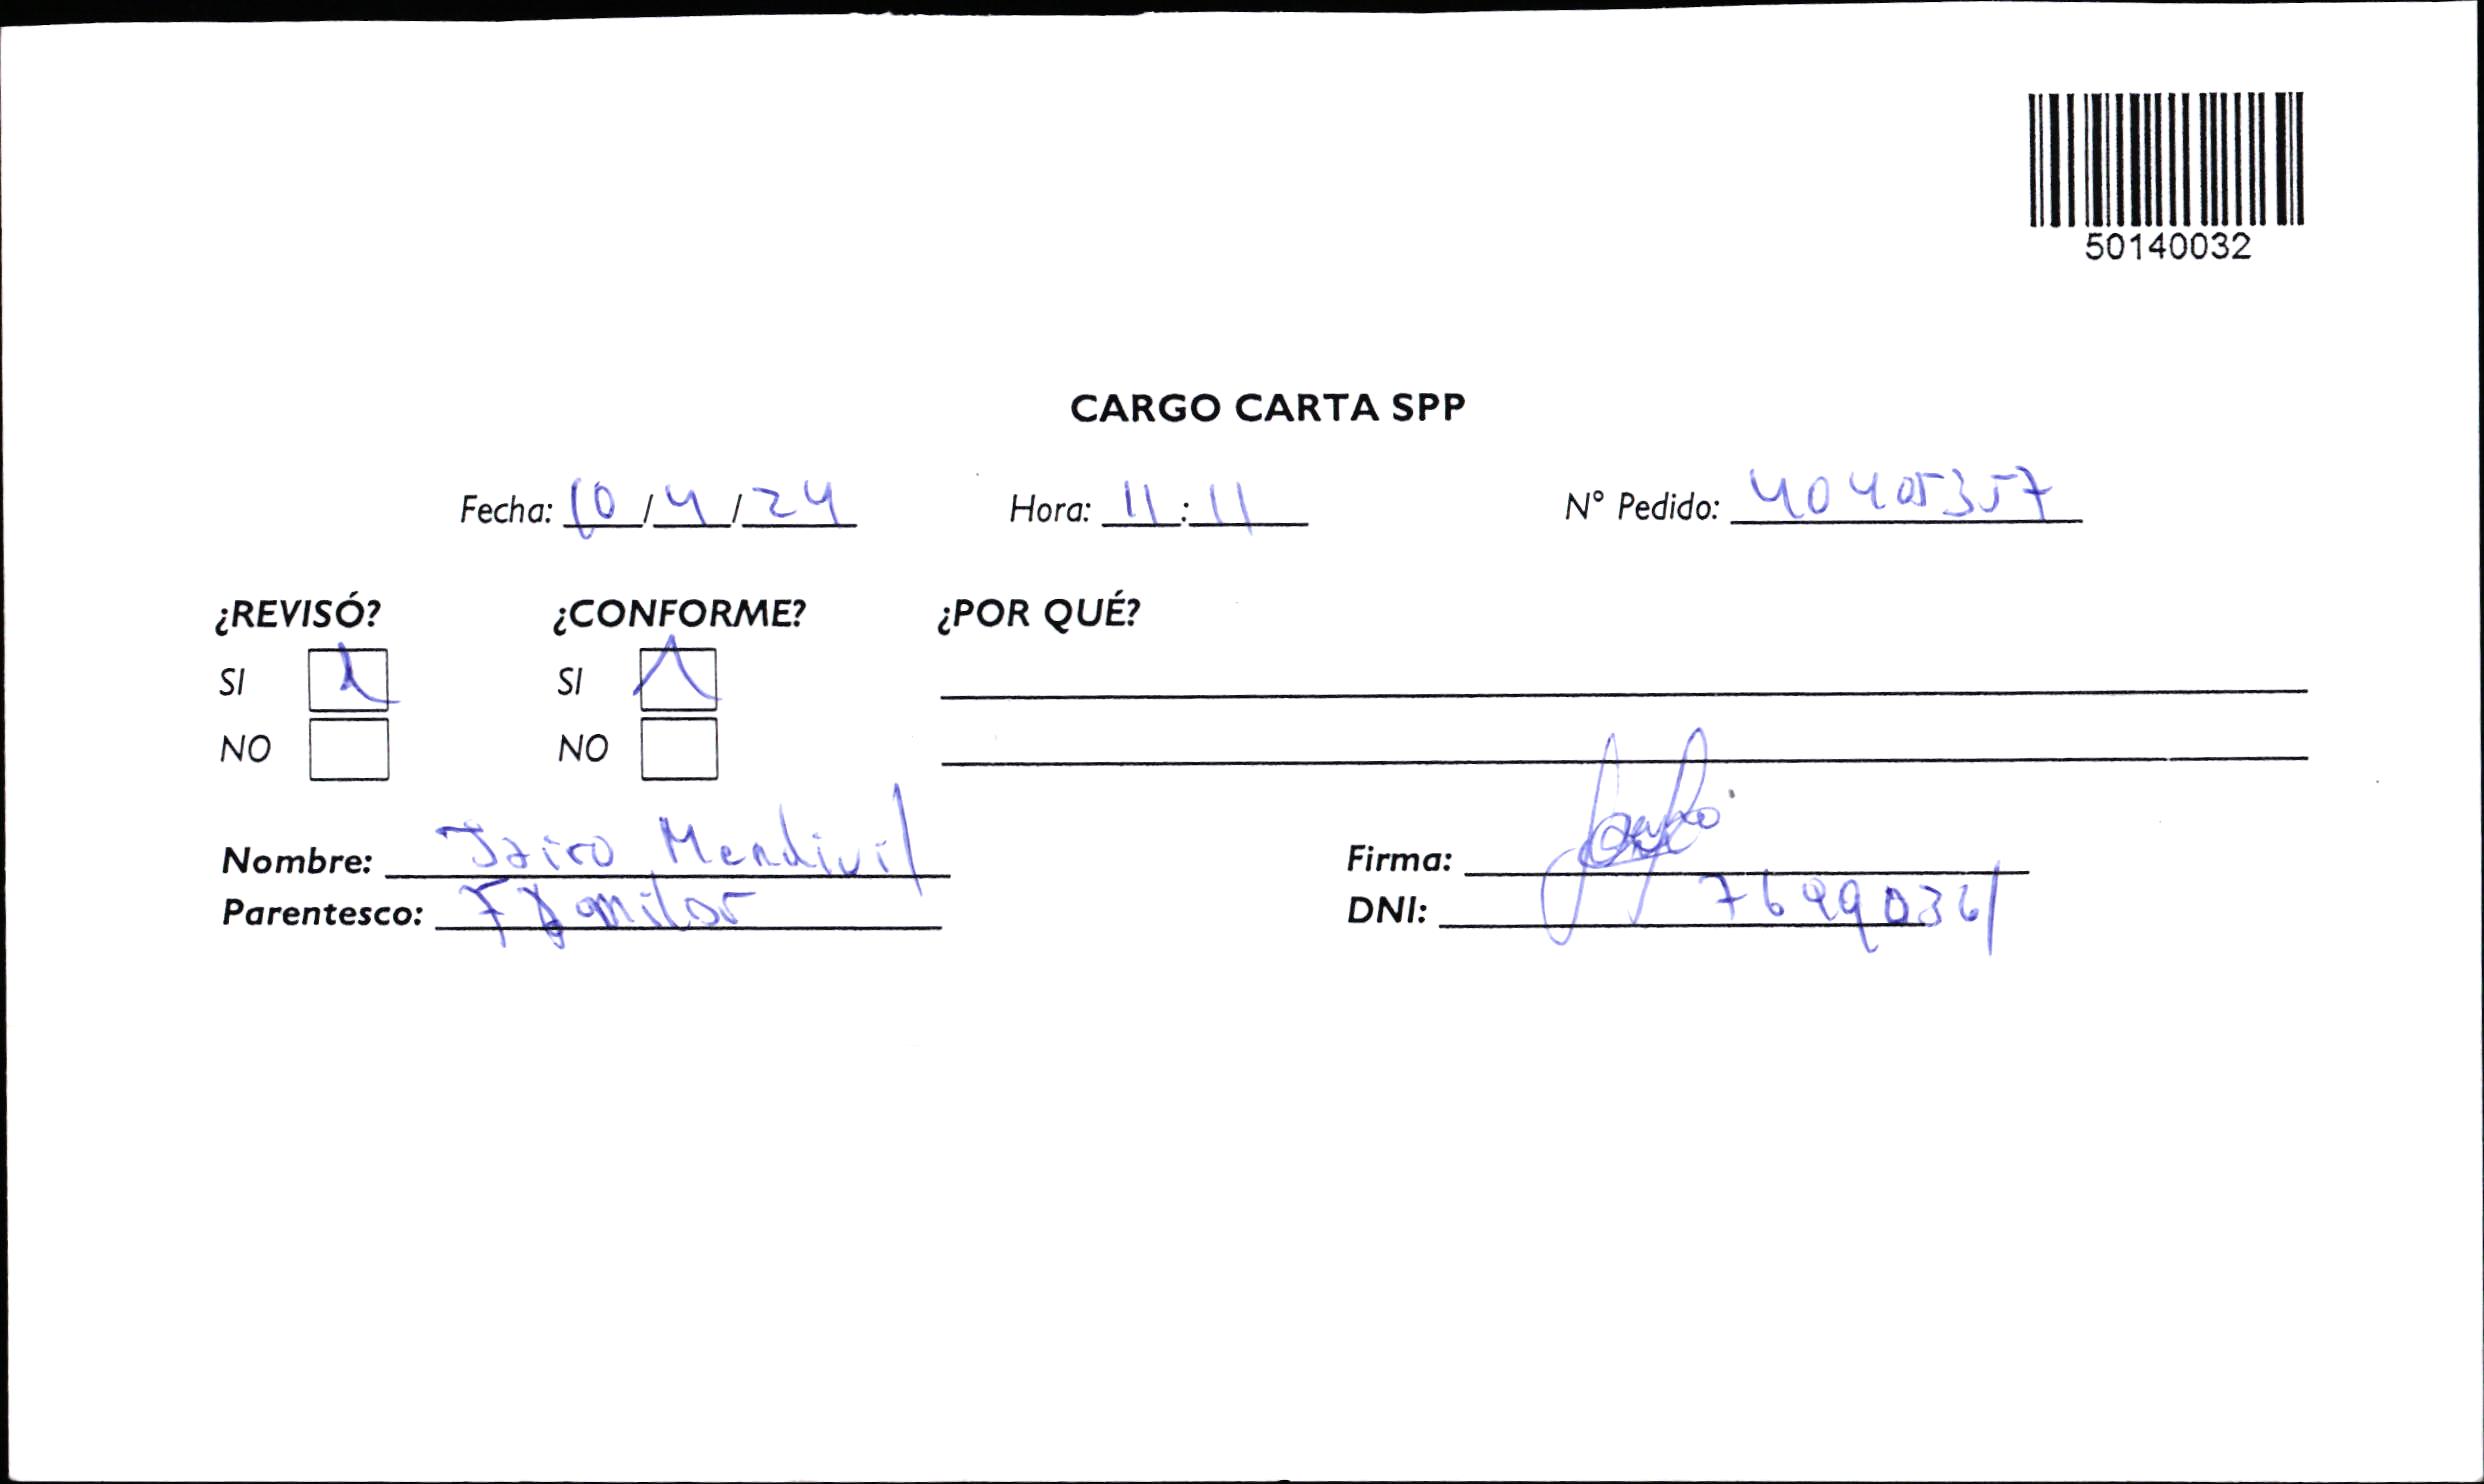 50140032
CARGO CARTA SPP
Fecha: 10/4/24 Hora: 11:11 N° Pedido: 40405357
¿REVISÓ? ¿CONFORME? ¿POR QUÉ?
SI SI
NO NO
Nombre: Jairo Mendivil Firma:
Parentesco: Familiar DNI: